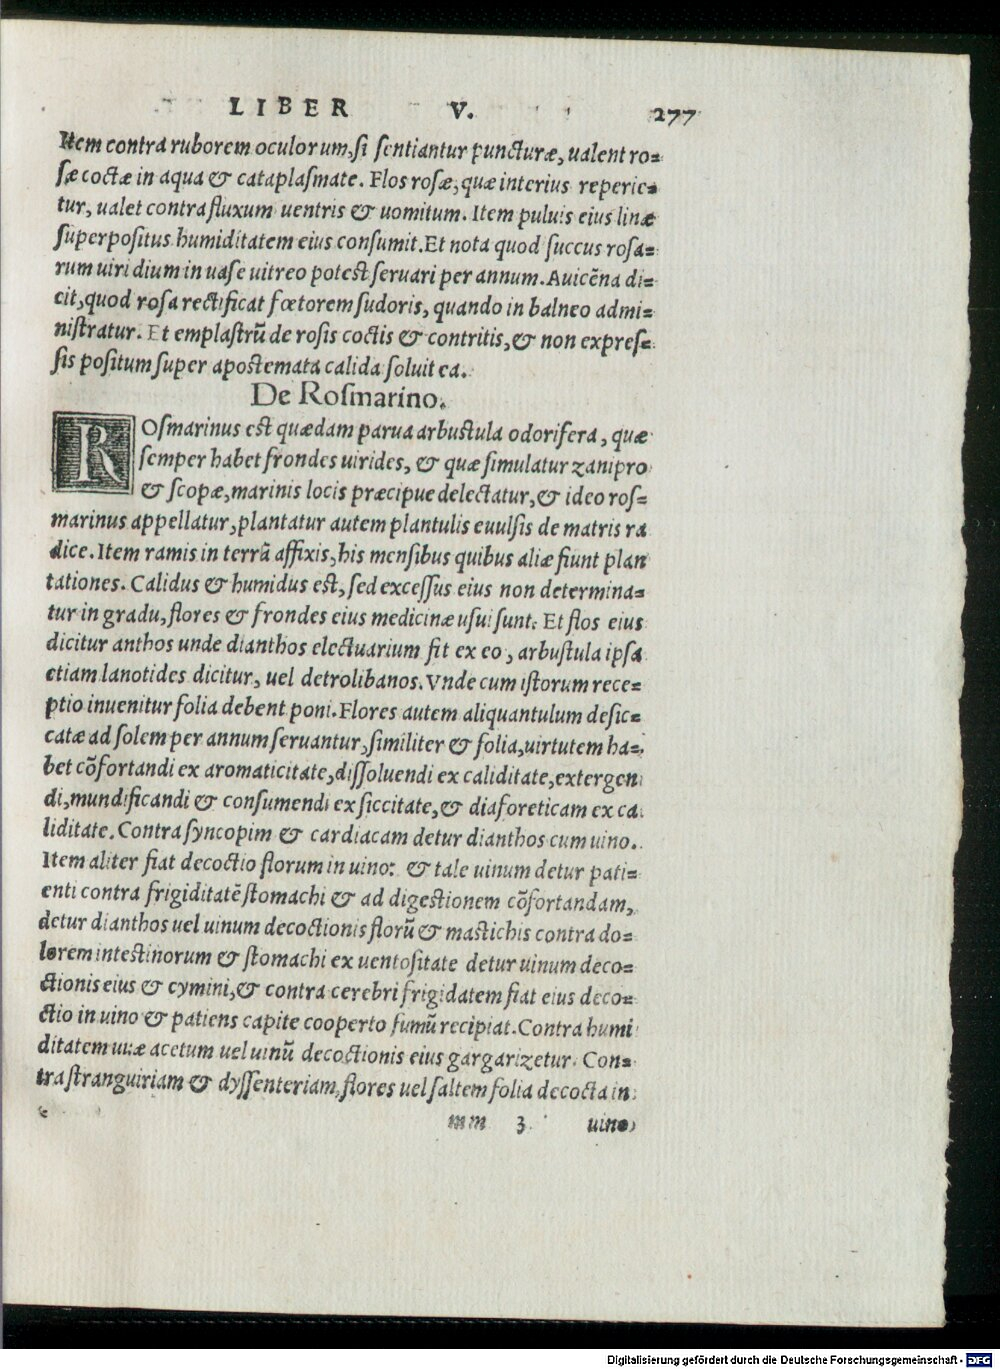 LIBER V. 277
Item contra ruborem oculorum, si sentiantur puncturæ, ualent ro=
sæ coctæ in aqua & cataplasmate. Flos rosæ, quæ interius reperie=
tur, ualet contra fluxum uentris & uomitum. Item puluis eius linæ
superpositus humiditatem eius consumit. Et nota quod succus rosa=
rum uiridium in uase uitreo potest seruari per annum. Auicēna di=
cit, quod rosa rectificat fœtorem sudoris, quando in balneo admi=
nistratur. Et emplastrū de rosis coctis & contritis, & non expres=
sis positum super apostemata calida soluit ea.
De Rosmarino.
ROsmarinus est quædam parua arbustula odorifera, quæ
semper habet frondes uirides, & quæ simulatur zanipro
& scopæ, marinis locis præcipue delectatur, & ideo ros=
marinus appellatur, plantatur autem plantulis euulsis de matris ra
dice. Item ramis in terrā affixis, his mensibus quibus aliæ fiunt plan
tationes. Calidus & humidus est, sed excessus eius non determina=
tur in gradu, flores & frondes eius medicinæ usui sunt. Et flos eius
dicitur anthos unde dianthos electuarium fit ex eo, arbustula ipsa
etiam lanotides dicitur, uel detrolibanos. Vnde cum istorum rece=
ptio inuenitur folia debent poni. Flores autem aliquantulum desic=
catæ ad solem per annum seruantur, similiter & folia, uirtutem ha=
bet cōfortandi ex aromaticitate, dissoluendi ex caliditate, extergen
di, mundificandi & consumendi ex siccitate, & diaforeticam ex ca
liditate. Contra syncopim & cardiacam detur dianthos cum uino.
Item aliter fiat decoctio florum in uino: & tale uinum detur pati=
enti contra frigiditatē stomachi & ad digestionem cōfortandam,
detur dianthos uel uinum decoctionis florū & mastichis contra do=
lorem intestinorum & stomachi ex uentositate detur uinum deco=
ctionis eius & cymini, & contra cerebri frigidatem fiat eius deco=
ctio in uino & patiens capite cooperto fumū recipiat. Contra humi
ditatem uuæ acetum uel uinū decoctionis eius gargarizetur. Con=
tra stranguiriam & dyssenteriam, flores uel saltem folia decocta in
mm 3 uino,
Digitalisierung gefördert durch die Deutsche Forschungsgemeinschaft - DFG